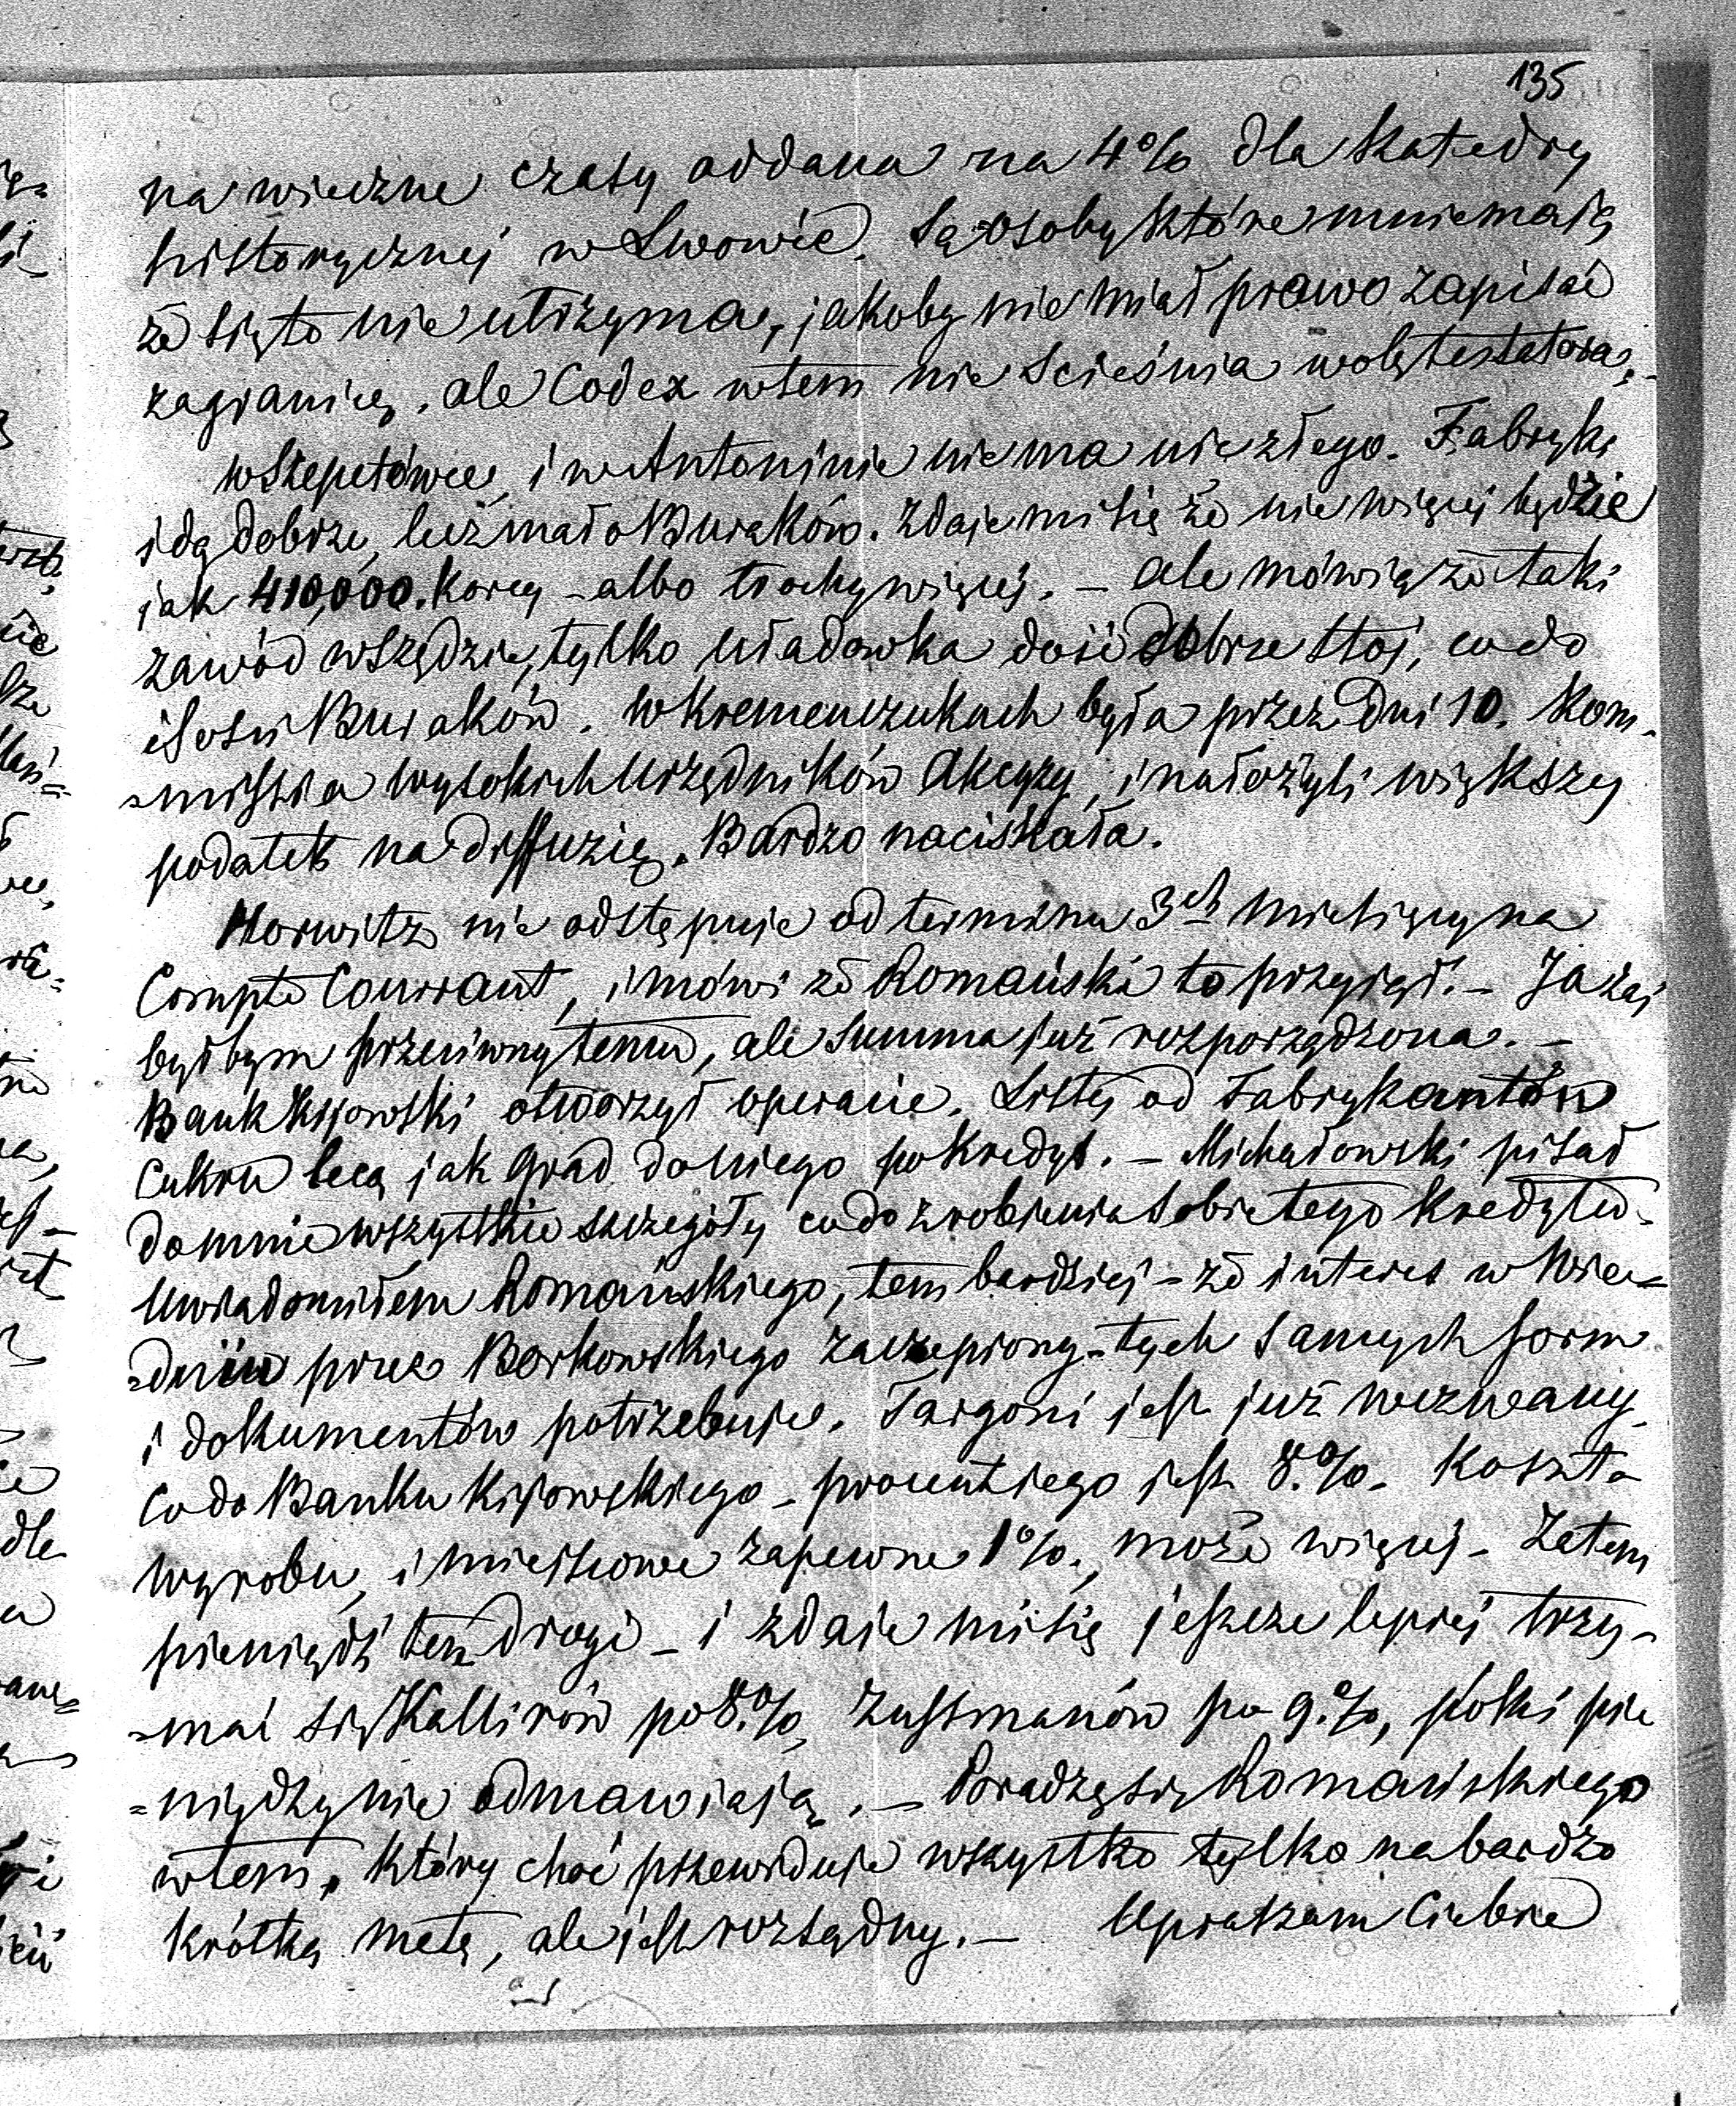 135
na wieczne czasy oddana na 4% dla Katedry
historycznej w Lwowie. Są osoby które mniemają
że się to nie utrzyma, jakoby nie miał prawo zapisać
zagranicę, ale Codex w tem nie ścieśnia wolę testatora.
w Szepetówce, i w Antoninie nie ma nic złego. Fabryki
idą dobrze, lecz mało Buraków. Zdaje mi się że nie więcej będzie
jak 410,000. Korcy - albo trochę więcej. - ale mówią że taki
zawód wszędzie, tylko Uładowka dość dobrze stoi, co do
ilości Buraków. w Kremenczukach była przez dni 10. Kom-
=missia wysokich Urzędników Akcyzy, i nałożyli większy
podatek na diffuzię. Bardzo naciskała.
Horwitz nie odstępuje od terminu 3ch miesięcy na
Compte Courrant, i mówi że Romański to przyjął. - Ja zaś
byłbym przeciwny temu, ale Summa już rozporządzona. -
Bank Kijowski otworzył operacie. Listy od Fabrykantów
Cukru lecą jak grad do niego po Kredyt. - Michałowski pisał
do mnie wszystkie szczegóły co do zrobienia sobie tego Kredytu.
Uwiadomiłem Romańskiego, tem bardziej - że interes w Wie=
=dniu przez Borkowskiego zaczepiony - tych samych form
i dokumentów potrzebuje. Targoni jest już wezwany.
Co do Banku Kijowskiego - procent jego jest 8.%. Koszta
wyrobu, i miejscowe zapewne 1%., może więcej - Zatem
pieniądz ten drogi - i zdaje mi się jeszcze lepiej trzy-
=mać się Kallirów po 8.%, Zussmanów po 9.%, póki pie
=niędzy nie odmawiają. - Poradzę się Romańskiego
w tem, który choć przewiduje wszystko tylko na bardzo
krótką metę, ale jest rozsądny. - Upraszam Ciebie